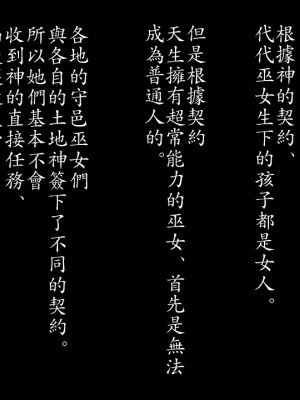 根據神的契約、
代代巫女生下的孩子都是女人。
但是根據契約
天生擁有超常能力的巫女、首先是無法
成為普通人的。
各地的守邑巫女們
與各自的土地神簽下了不同的契約。
所以她們基本不會
收到神的直接任務、